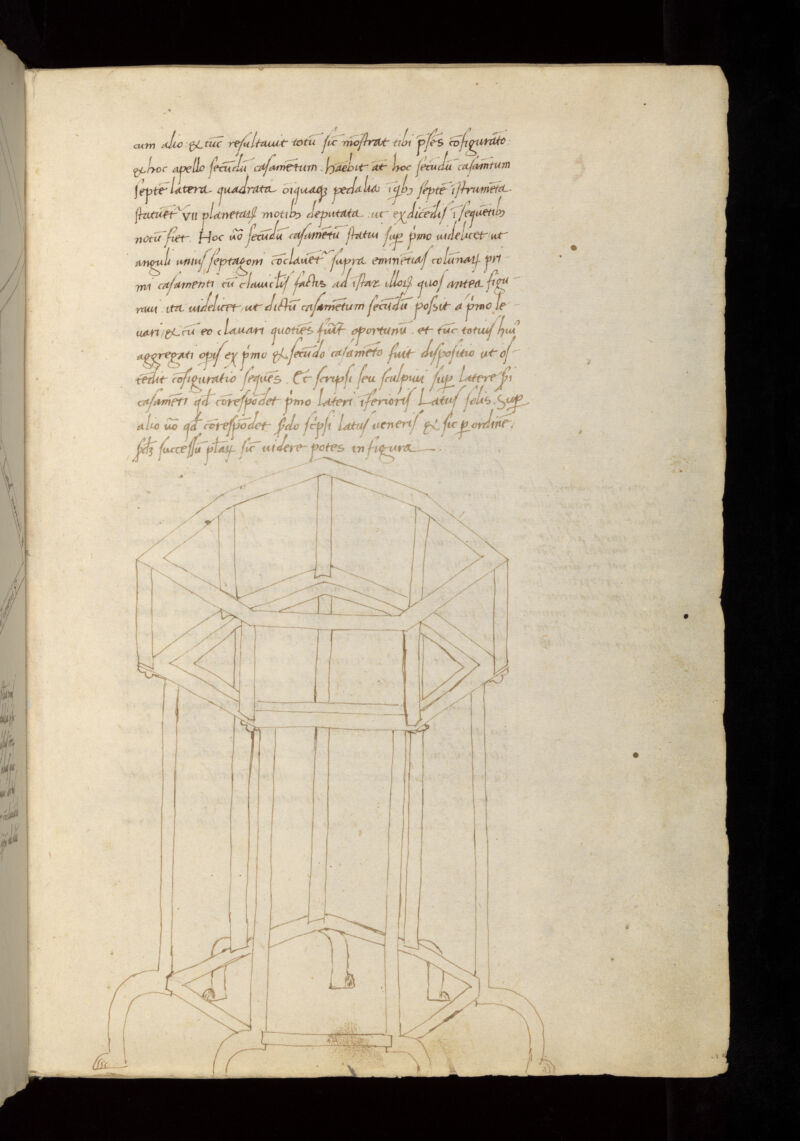 cum alio & tūc resultauit totū sic mōstrat tibi p̄sēs cōfigurato
& hoc apello secūdū casamētum. haebit at̄ hoc secūdū casamtum
septē latera quadrata oīquaqꝫ pedalia ī qbꝫ septē īstrumēta
statuēt VII planetaꝝ motibꝫ deputata. ut ex dicēdis ī sequētibꝫ
notū fiet. Hoc uo secūdū casamētū statui sup p̄mo uidelicet ut
anguli unius septagoni cōclauēt supra eminētias colūnaꝝ pri
mi casamenti cū clauiclis factis ad istar illoꝝ quos antea figu
raui. ita uidelicet ut dictū casamētum secūdū possit a p̄mo le
uari & cū eo clauari quoties fuit oportunū. et tūc totius hui
aggregati opis ex p̄mo & secūdo casamēto fuit dispositio ut os
tēdit cōfiguratio sequēs. Et scripsi seu sculpsi sup latere
casamēti qd correspōdet p̄mo lateri īferioris Latus solis. Sup
alio uo qd correspōdet scdo scpsi latus ueneris & sic p ordinē
successū sic uidere potes in figura